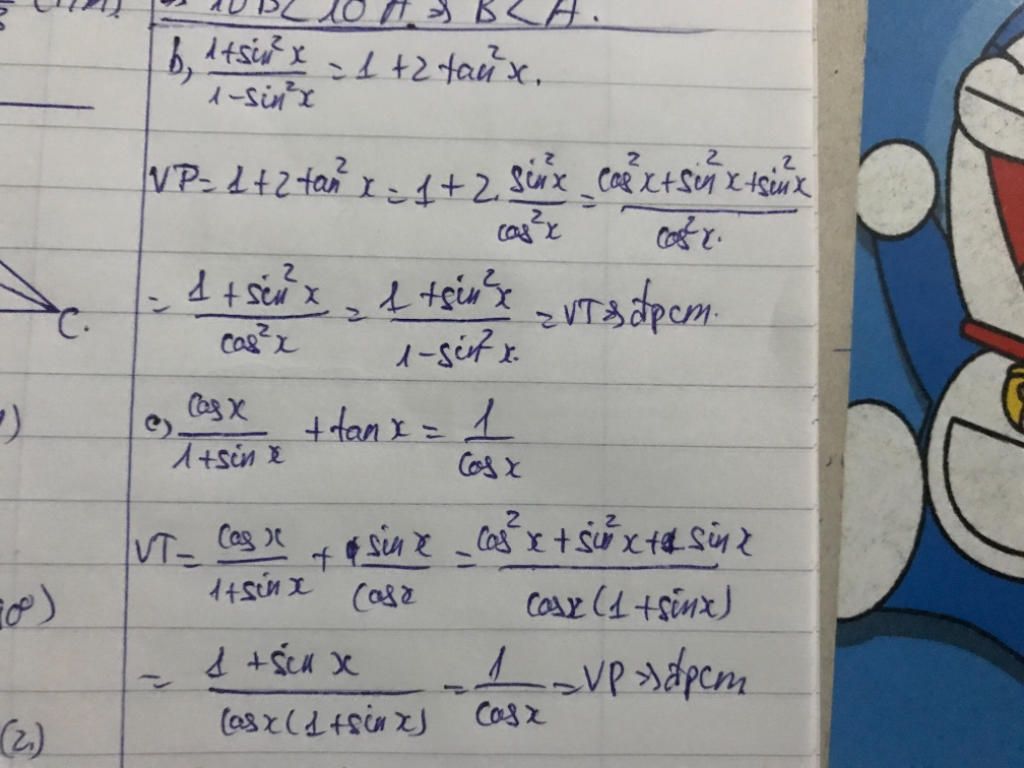 ⇒ 10B < 10A ⇒ B < A.
b, (1+sin²x)/(1-sin²x) = 1+2tan²x.
VP = 1+2tan²x = 1+2.sin²x/cos²x = (cos²x+sin²x+sin²x)/cos²x.
= (1+sin²x)/cos²x = (1+sin²x)/(1-sin²x) = VT ⇒ đpcm.
C.
c, cosx/(1+sinx) + tanx = 1/cosx
VT = cosx/(1+sinx) + sinx/cosx = (cos²x+sin²x+sinx)/(cosx(1+sinx))
= (1+sinx)/(cosx(1+sinx)) = 1/cosx = VP ⇒ đpcm
(2)